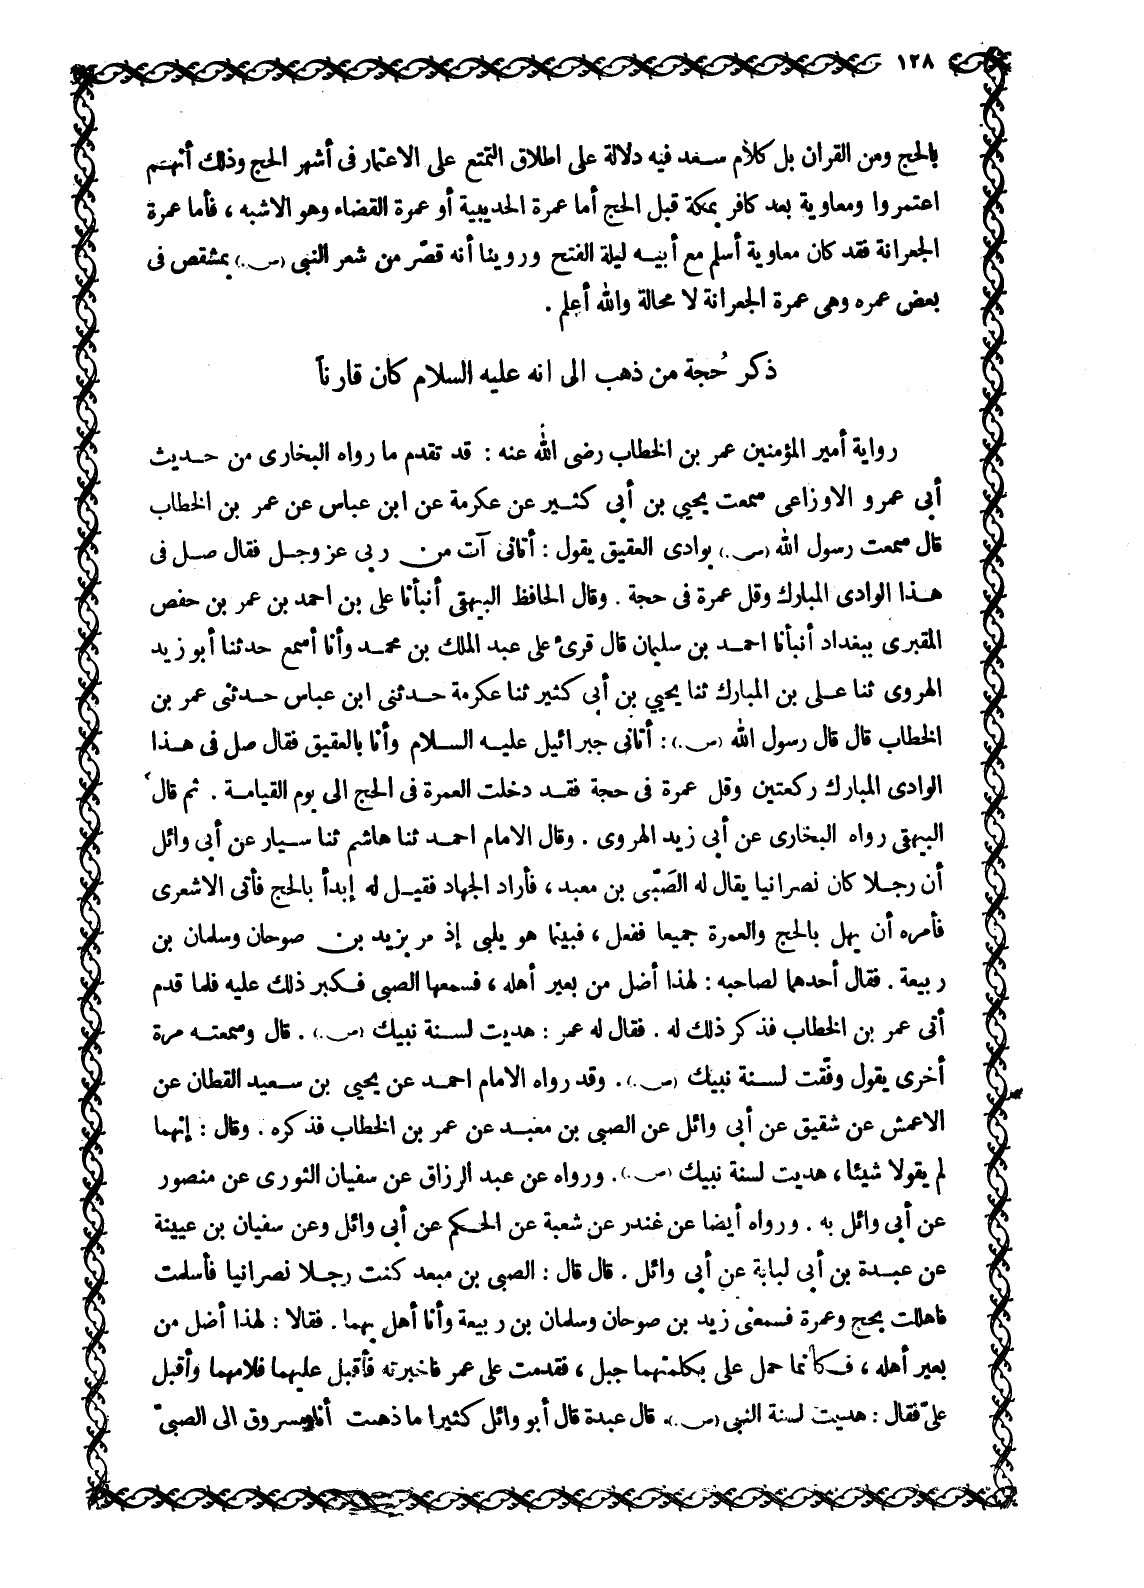 ١٢٨
بالحج ومن القران بل كلام سعد فيه دلالة على اطلاق التمتع على الاعتمار فى أشهر الحج وذلك أنهم
اعتمروا ومعاوية بعد كافر بمكة قبل الحج أما عمرة الحديبية أو عمرة القضاء وهو الاشبه ، فأما عمرة
الجعرانة فقد كان معاوية أسلم مع أبيه ليلة الفتح وروينا أنه قصّر من شعر النبى (ص.) بمشقص فى
بعض عمره وهى عمرة الجعرانة لا محالة والله أعلم .
ذكر حُجة من ذهب الى انه عليه السلام كان قارناً
رواية أمير المؤمنين عمر بن الخطاب رضى الله عنه : قد تقدم ما رواه البخارى من حديث
أبى عمرو الاوزاعى سمعت يحيى بن أبى كثير عن عكرمة عن ابن عباس عن عمر بن الخطاب
قال سمعت رسول الله (ص.) بوادى العقيق يقول : أتانى آت من ربى عز وجل فقال صل فى
هذا الوادى المبارك وقل عمرة فى حجة . وقال الحافظ البيهقى أنبأنا على بن احمد بن عمر بن حفص
المقبرى ببغداد أنبأنا احمد بن سليمان قال قرئ على عبد الملك بن محمد وأنا أسمع حدثنا أبو زيد
الهروى ثنا على بن المبارك ثنا يحيى بن أبى كثير ثنا عكرمة حدثنى ابن عباس حدثنى عمر بن
الخطاب قال قال رسول الله (ص.) : أتانى جبرائيل عليه السلام وأنا بالعقيق فقال صل فى هذا
الوادى المبارك ركعتين وقل عمرة فى حجة فقد دخلت العمرة فى الحج الى يوم القيامة . ثم قال
البيهقى رواه البخارى عن أبى زيد الهروى . وقال الامام احمد ثنا هاشم ثنا سيار عن أبى وائل
أن رجلا كان نصرانيا يقال له الصَبّى بن معبد ، فأراد الجهاد فقيل له إبدأ بالحج فأتى الاشعرى
فأمره أن يهل بالحج والعمرة جميعا ففعل ، فبينما هو يلبى إذ مر بزيد بن صوحان وسلمان بن
ربيعة . فقال أحدهما لصاحبه : لهذا أضل من بعير أهله ، فسمعها الصبى فكبر ذلك عليه فلما قدم
أتى عمر بن الخطاب فذكر ذلك له . فقال له عمر : هديت لسنة نبيك (ص.) . قال وسمعته مرة
أخرى يقول وفّقت لسنة نبيك (ص.) . وقد رواه الامام احمد عن يحيى بن سعيد القطان عن
الاعمش عن شقيق عن أبى وائل عن الصبى بن معبد عن عمر بن الخطاب فذكره . وقال : إنهما
لم يقولا شيئا ، هديت لسنة نبيك (ص.) . ورواه عن عبد الرزاق عن سفيان الثورى عن منصور
عن أبى وائل به . ورواه أيضا عن غندر عن شعبة عن الحكم عن أبى وائل وعن سفيان بن عيينة
عن عبدة بن أبى لبابة عن أبى وائل . قال قال : الصبى بن معبد كنت رجلا نصرانيا فأسلمت
فاهللت بحج وعمرة فسمعنى زيد بن صوحان وسلمان بن ربيعة وأنا أهل بهما . فقالا : لهذا أضل من
بعير أهله ، فكأنما حمل على بكلمتهما جبل ، فقدمت على عمر فاخبرته فأقبل عليهما فلامهما وأقبل
علىّ فقال : هديت لسنة النبى (ص.) . قال عبدة قال أبو وائل كثيرا ما ذهبت أنا ومسروق الى الصبىّ